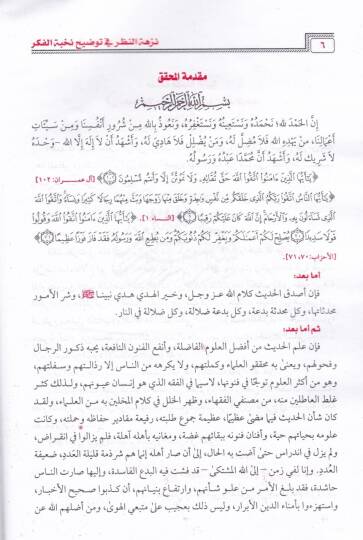 نزهة النظر في توضيح نخبة الفكر
٦
مقدمة المحقق
بسم الله الرحمن الرحيم
إِنَّ الحَمْدَ للهِ؛ نَحْمَدُهُ وَنَسْتَعِينُهُ وَنَسْتَغْفِرُهُ، وَنَعُوذُ بِاللهِ مِنْ شُرُورِ أَنْفُسِنَا وَمِنْ سَيِّئَاتِ
أَعْمَالِنَا، مَنْ يَهْدِهِ اللهُ فَلَا مُضِلَّ لَهُ، وَمَنْ يُضْلِلْ فَلَا هَادِيَ لَهُ، وَأَشْهَدُ أَنْ لَا إِلَهَ إِلَّا اللهُ -وَحْدَهُ
لَا شَرِيكَ لَهُ، وَأَشْهَدُ أَنَّ مُحَمَّدًا عَبْدُهُ وَرَسُولُهُ.
﴿يَٰٓأَيُّهَا ٱلَّذِينَ ءَامَنُوا۟ ٱتَّقُوا۟ ٱللَّهَ حَقَّ تُقَاتِهِۦ وَلَا تَمُوتُنَّ إِلَّا وَأَنتُم مُّسْلِمُونَ﴾ [آل عمران: ١٠٢]
﴿يَٰٓأَيُّهَا ٱلنَّاسُ ٱتَّقُوا۟ رَبَّكُمُ ٱلَّذِى خَلَقَكُم مِّن نَّفْسٍ وَٰحِدَةٍ وَخَلَقَ مِنْهَا زَوْجَهَا وَبَثَّ مِنْهُمَا رِجَالًا كَثِيرًا وَنِسَآءً وَٱتَّقُوا۟ ٱللَّهَ
ٱلَّذِى تَسَآءَلُونَ بِهِۦ وَٱلْأَرْحَامَ إِنَّ ٱللَّهَ كَانَ عَلَيْكُمْ رَقِيبًا﴾ [النساء: ١]. ﴿يَٰٓأَيُّهَا ٱلَّذِينَ ءَامَنُوا۟ ٱتَّقُوا۟ ٱللَّهَ وَقُولُوا۟
قَوْلًا سَدِيدًا يُصْلِحْ لَكُمْ أَعْمَٰلَكُمْ وَيَغْفِرْ لَكُمْ ذُنُوبَكُمْ وَمَن يُطِعِ ٱللَّهَ وَرَسُولَهُۥ فَقَدْ فَازَ فَوْزًا عَظِيمًا﴾
[الأحزاب: ٧٠، ٧١].
أما بعد:
فإن أصدق الحديث كلام الله عز وجل، وخير الهدي هدي نبينا ﷺ، وشر الأمور
محدثاتها، وكل محدثة بدعة، وكل بدعة ضلالة، وكل ضلالة في النار.
ثم أما بعد:
فإن علم الحديث من أفضل العلوم الفاضلة، وأنفع الفنون النافعة، يحبه ذكور الرجال
وفحولهم، ويعنى به محققو العلماء وكملتهم، ولا يكرهه من الناس إلا رذالتهم وسفلتهم،
وهو من أكثر العلوم تولجًا في فنونها، لاسيما في الفقه الذي هو إنسان عيونهم، ولذلك كثر
غلط العاطلين منه، من مصنفي الفقهاء، وظهر الخلل في كلام المخلين به من العلماء، ولقد
كان شأن الحديث فيما مضى عظيمًا، عظيمة جموع طلبته، رفيعة مقادير حفاظه وحملته، وكانت
علومه بحياتهم حية، وأفنان فنونه ببقائهم غضة، ومغانيه بأهله آهلة، فلم يزالوا في انقراض،
ولم يزل في اندراس حتى آضت به الحال، إلى أن صار أهله إنما هم شرذمة قليلة العدد، ضعيفة
العدد، وإنا لفي زمن -إلى الله المشتكى- قد فشت فيه البدع الفاسدة، وإليها صارت الناس
حاشدة، فقد بلغ الأمر من علو شأنهم، وارتفاع بنيانهم، أن كذبوا صحيح الأخبار،
واستهزءوا بأمناء الدين الأبرار، وليس ذلك بعجيب على متبعي الهوى، ومن أضلهم الله عن